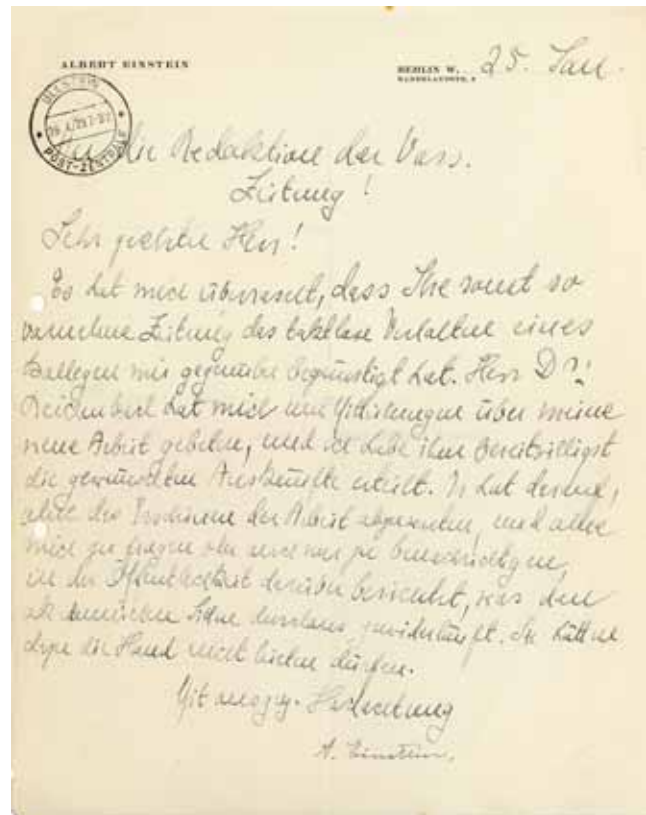 ALBERT EINSTEIN
BERLIN W. 25. Jan.
HABERLANDSTR. 5
ULLSTEIN
POST-ZENTRALE
An die Redaktion der Voss.
Zeitung!
Sehr geehrter Herr!
Es hat mich überrascht, dass Ihre sonst so
vornehme Zeitung das taktlose Verhalten eines
Kollegen mir gegenüber begünstigt hat. Herr Dr.
Reichenbach hat mich um Mitteilungen über meine
neue Arbeit gebeten, und ich habe ihm bereitwilligst
die gewünschten Auskünfte erteilt. Er hat darauf,
ohne das Erscheinen der Arbeit abzuwarten, und ohne
mich zu fragen oder auch nur zu benachrichtigen,
in der Öffentlichkeit darüber berichtet, was den
akademischen Sitten durchaus zuwiderläuft. Sie hätten
dazu die Hand nicht bieten dürfen.
Mit ausgez. Hochachtung
A. Einstein.